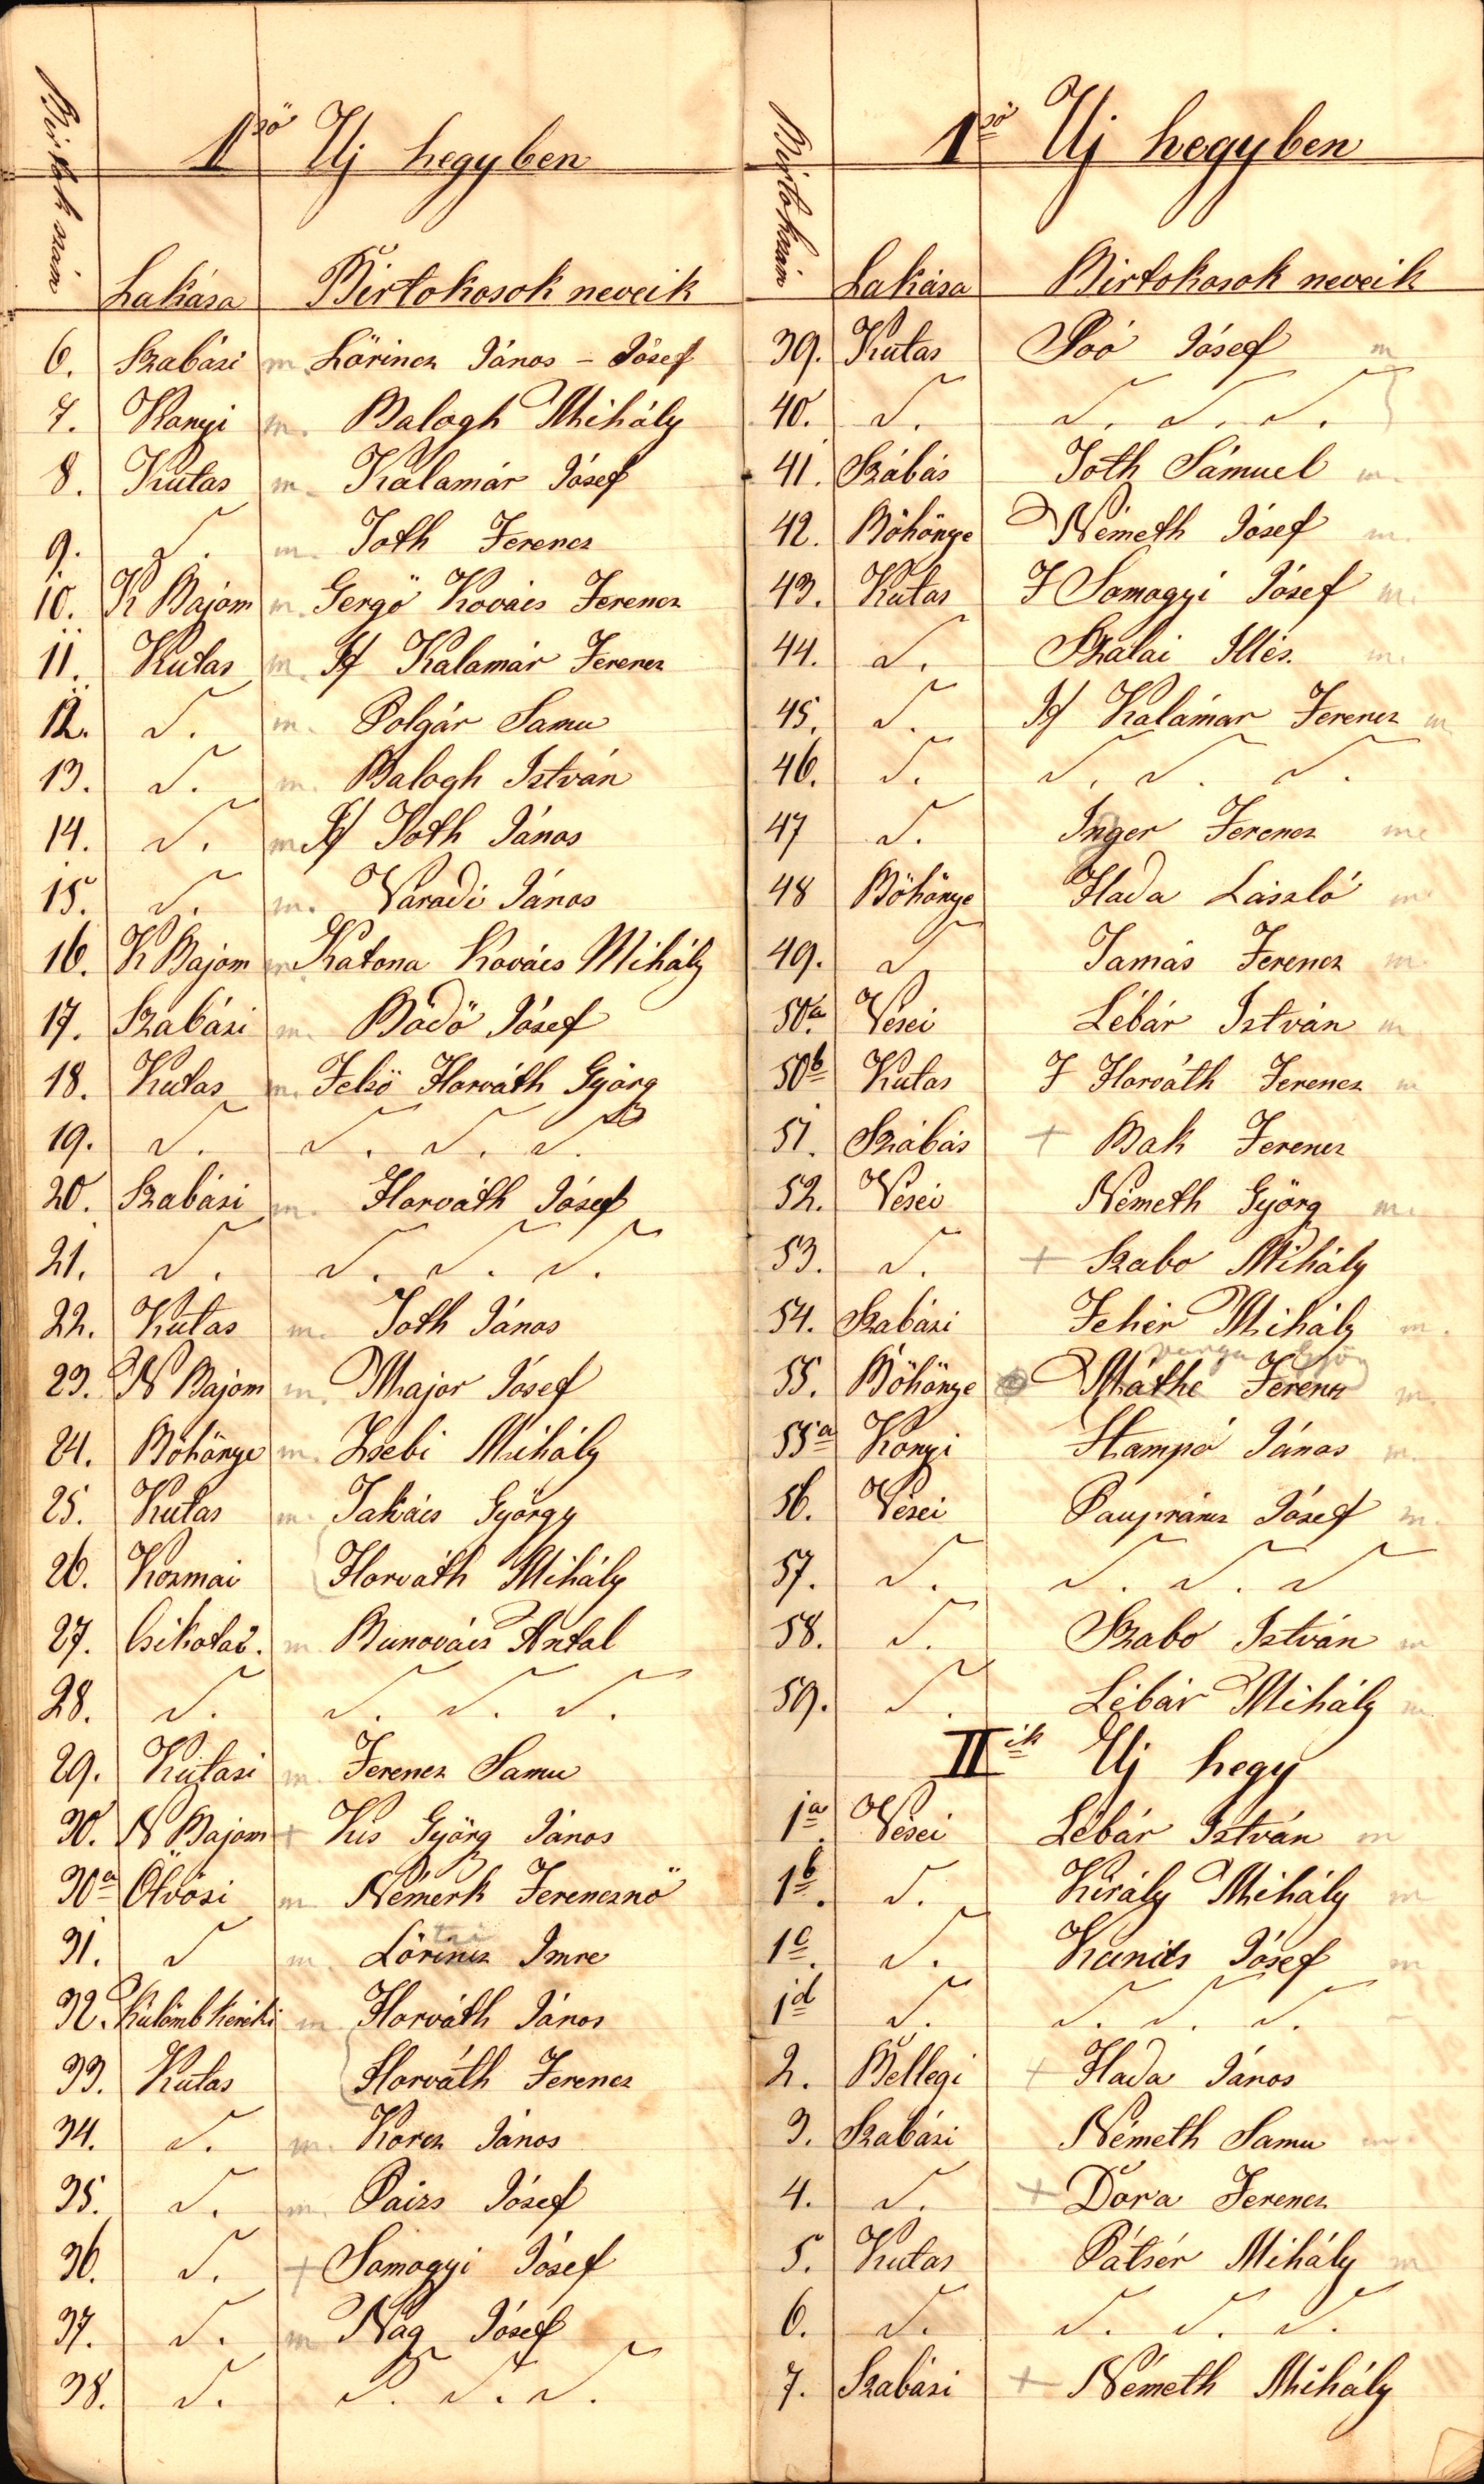 1ső Uj hegyben
Birtok szám Lakása Birtokosok neveik
6. Szabási m. Lörincz János – Jósef
7. Kanyi m. Balogh Mihály
8. Kutas m. Kalamár Jósef
9. 〃. m. Toth Ferencz
10. K Bajom m. Gergö Kovács Ferencz
11. Kutas m. If Kalamár Ferencz
12. 〃. m. Polgár Samu
13. 〃. m. Balogh István
14. 〃. m. If Toth János
15. 〃. m. Varadi János
16. K Bajom m. Katona Kovács Mihály
17. Szabási m. Bodö Jósef
18. Kutas m. Felsö Horváth Györg
19. 〃. 〃. 〃. 〃.
20. Szabási m. Horváth Jósef
21. 〃. 〃. 〃. 〃.
22. Kutas m. Toth János
23. N Bajom m. Major Jósef
24. Böhönye m. Zsebi Mihály
25. Kutas m. Takács György
26. Kozmai Horváth Mihály
27. Csikotai. m Bunovács Antal
28. 〃. 〃. 〃. 〃.
29. Kutasi m. Ferencz Samu
30. N Bajom + Kis Györg János
30a Ötvösi m. Németh Ferencznö
31. 〃 m. Lörincz Imre
32. Külömb keréki m Horváth János
33. Kutas Horváth Ferencz
34. 〃. m. Korcz János
35. 〃. m. Paizs Jósef
36. 〃. + Somogyi Jósef
37. 〃. m Nag Jósef
38. 〃. 〃. 〃. 〃.
1ső Uj hegyben
Birtokszám Lakása Birtokosok neveik
39. Kutas Soó Jósef m
40. 〃. 〃. 〃. 〃.
41. Szábás Toth Sámuel m.
42. Böhönye Németh Jósef m.
43. Kutas F Somogyi Jósef m.
44. 〃. Szalai Illés. m.
45. 〃. If Kalámar Ferencz m
46. 〃. 〃. 〃. 〃.
47 〃. Inger Ferencz m
48 Böhönye Hada László m
49. 〃 Tamás Ferencz m.
50a. Vései Lébár István m
50b Kutas F Horváth Ferencz m
51. Szábás + Bak Ferencz
52. Vései Németh Györg m.
53. 〃. + Szabo Mihály
54. Szabási Fehér Mihály m.
55. Böhönye Máthé Ferencz m.
55a Konyi Stampó János m.
56. Vései Jósef m.
57. 〃. 〃. 〃. 〃
58. 〃. Szabo István m
59. 〃. Lébár Mihály m
IIik Uj hegy
1a. Vései Lébár István m
1b. 〃. Király Mihály m
1c. 〃. Kunits Jósef m
1d 〃. 〃. 〃. 〃. –
2. Bellegi + Hada János
3. Szabási Németh Samu m
4. 〃. + Dora Ferencz
5. Kutas Pátsér Mihály m
6. 〃. 〃. 〃. 〃.
7. Szabási + Németh Mihály